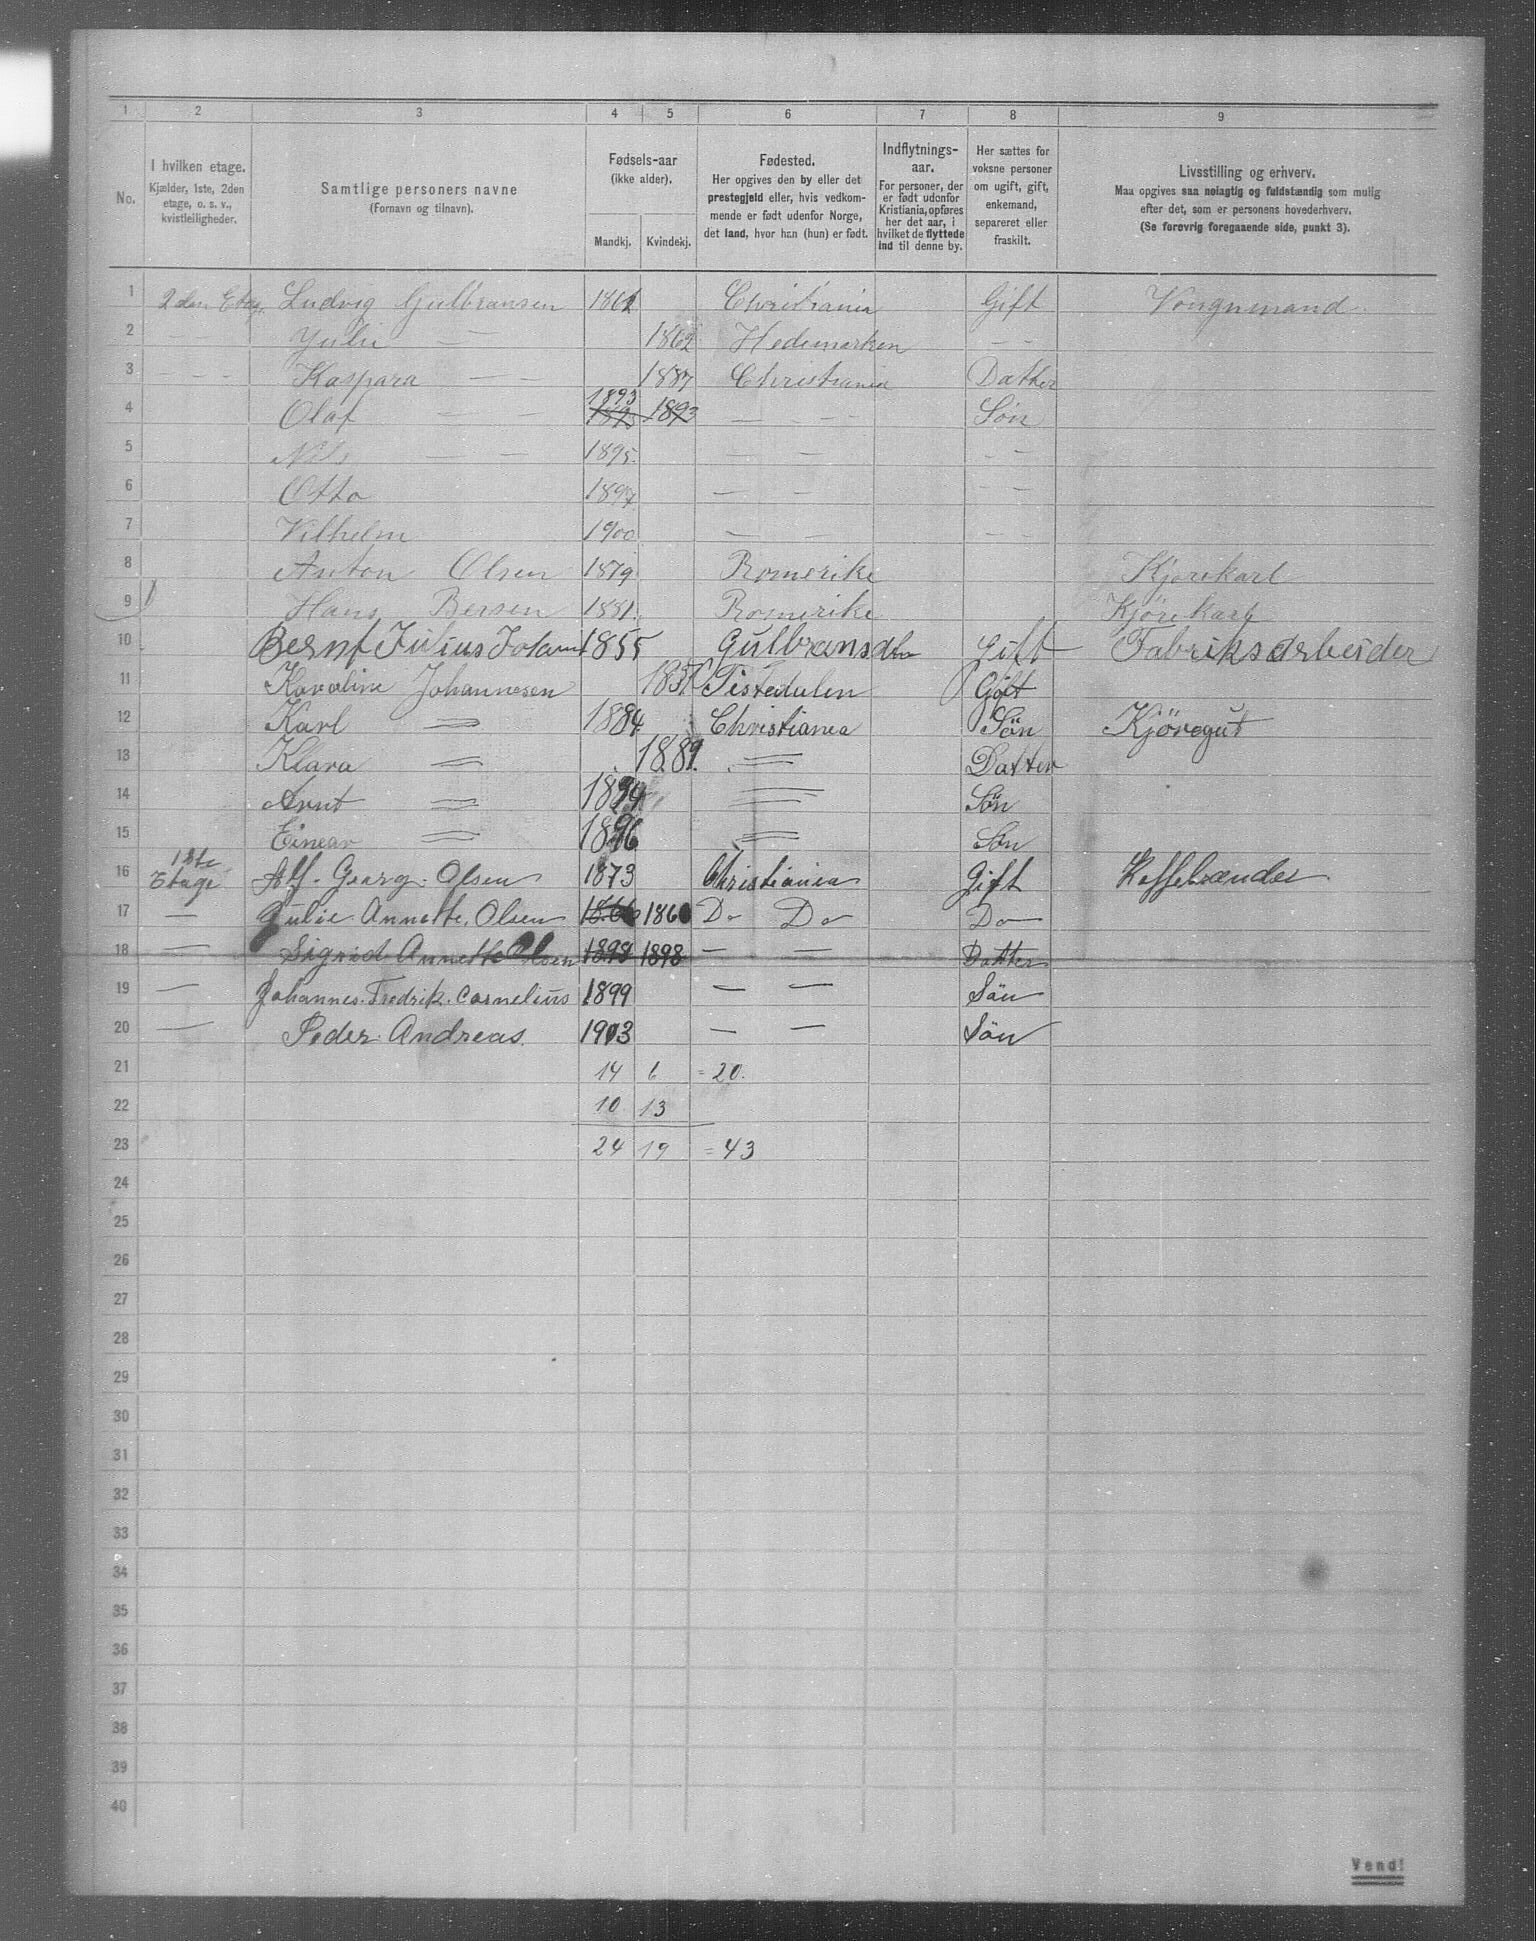 1 2 3 4 5 6 7 8 9
No.
I hvilken etage.
Kjælder, 1ste, 2den
etage, o. s. v.,
kvistleiligheder.
Samtlige personers navne
(Fornavn og tilnavn).
Fødsels-aar
(ikke alder).
Mandkj. Kvindekj.
Fødested.
Her opgives den by eller det
prestegjeld eller, hvis vedkom-
mende er født udenfor Norge,
det land, hvor han (hun) er født.
Indflytnings-
aar.
For personer, der
er født udenfor
Kristiania, opføres
her det aar, i
hvilket de flyttede
ind til denne by.
Her sættes for
voksne personer
om ugift, gift,
enkemand,
separeret eller
fraskilt.
Livsstilling og erhverv.
Maa opgives saa nøiagtig og fuldstændig som mulig
efter det, som er personens hovederhverv.
(Se forøvrig foregaaende side, punkt 3).
1 2den Etag. Ludvig Gulbransen 1861 Christiania Gift Vongnmand
2 Yulie — 1862 Hedemarken — —
3 — — — Kaspara — — 1887 Christiania Datter
1893
4 Olaf — — 1893 1893 — — — Søn
5 Nils — — 1895 — — — —
6 Otto 1897 — — — —
7 Vilhelm 1900 — — — —
8 Anton Olsen 1879 Romerike Kjørekarl
9 Hans Bersen 1881 Romerike Kjørekarl
10 Bernt Julius Johann 1855 Gulbransdln Gift Fabriksarbeider
11 Karoline Johannesen 1851 Tistedalen Gift
12 Karl = 1884 Christiania Søn Kjöregut
13 Klara = 1889. = Datter
14 Arnt = 1894 = Sön
15 Einear = 1896 = Søn
1ste
16 Etage Alf. Georg. Olsen 1873 Christiania Gift Kaffebrænder
17 — Julie Annette. Olsen 1860 1860 Do Do Do
18 — Sigrid Annette Olsen 1898 1898 — — Datter
19 — Johannes. Fredrik. Cornelius 1899 — — Sön
20 — Peder Andreas. 1903 — — Sön
21 14 6 = 20.
22 10 13
23 24 19 = 43
24
25
26
27
28
29
30
31
32
33
34
35
36
37
38
39
40
Vend!